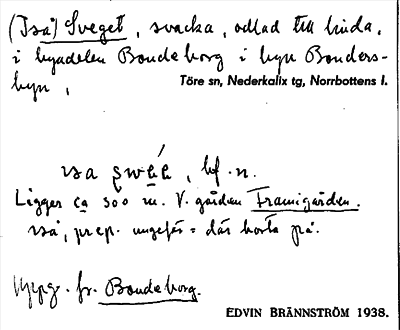 (Iså) Sveget, svacka, odlad till linda,
i byadelen Bondeborg i byn Bonders-
byn,
Töre sn, Nederkalix tg, Norrbottens l.
ısa swée, bf. n.
Ligger ca 300 m. V. gården Framigården.
ıså, prep. ungefär = där borta på.
Uppg. fr. Bondeborg.
EDVIN BRÄNNSTRÖM 1938.